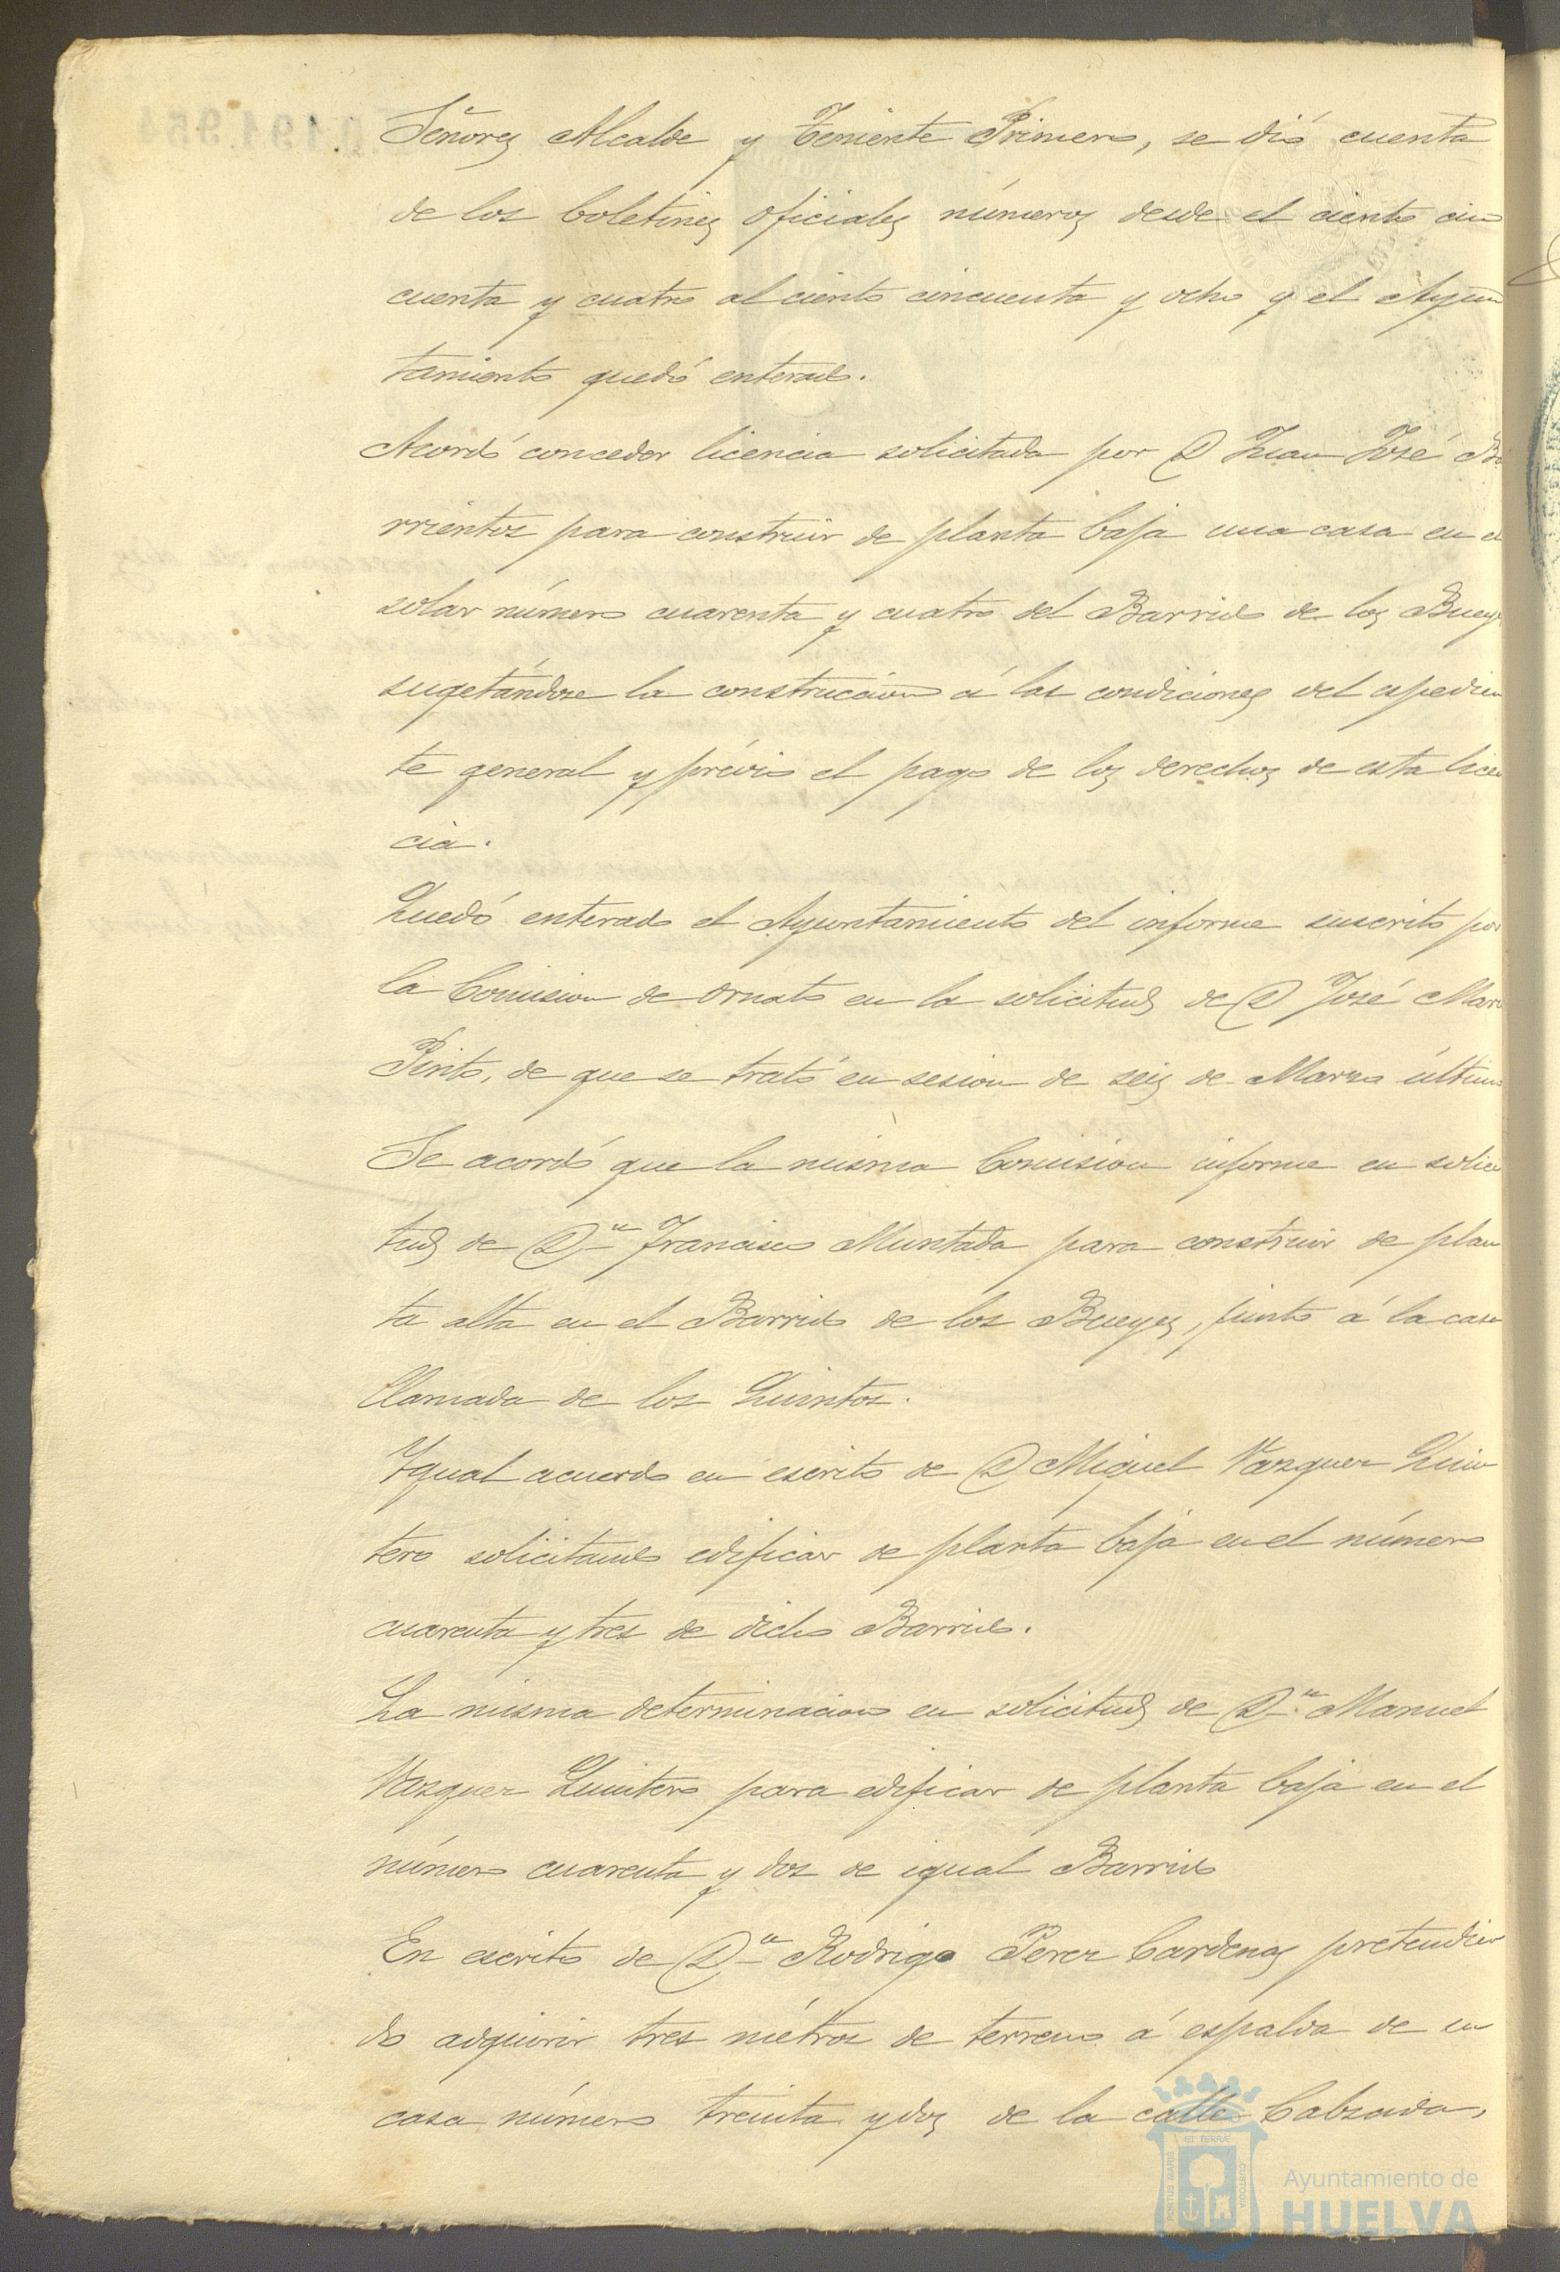 Señores Alcalde y Teniente Primero, se dió cuenta
de los boletines oficiales números desde el ciento cin
cuenta y cuatro al ciento cincuenta y ocho y el Ayun
tamiento quedó enterado.
Acordó conceder licencia solicitada por D Juan José Ba
rrientos para construir de planta baja una casa en el
solar número cuarenta y cuatro del Barrio de los Bueyes
sugetándose la construccion á las condiciones del espedien
te general y prévio el pago de los derechos de esta licen
cia.
Quedó enterado el Ayuntamiento del informe suscrito por
la Comision de ornato en la solicitud de D José Mara
Pinto, de que se trató en sesion de seis de Marzo último
Se acordó que la misma Comision informe en solici
tud de Dn Francisco Muntada para construir de plan
ta alta en el Barrio de los Bueyes, junto á la casa
llamada de los Quintos.
Igual acuerdo en escrito de D Miguel Vazquez Quin
tero solicitando edificar de planta baja en el número
cuarenta y tres de dicho Barrio.
La misma determinacion en solicitud de Dn Manuel
Vazquez Quintero para edificar de planta baja en el
número cuarenta y dos de igual Barrio
En escrito de Dn Rodrigo Perez Cardenas pretendien
do adquirir tres métros de terreno á espalda de su
casa número treinta y dos de la calle Calzada,
Ayuntamiento de
HUELVA